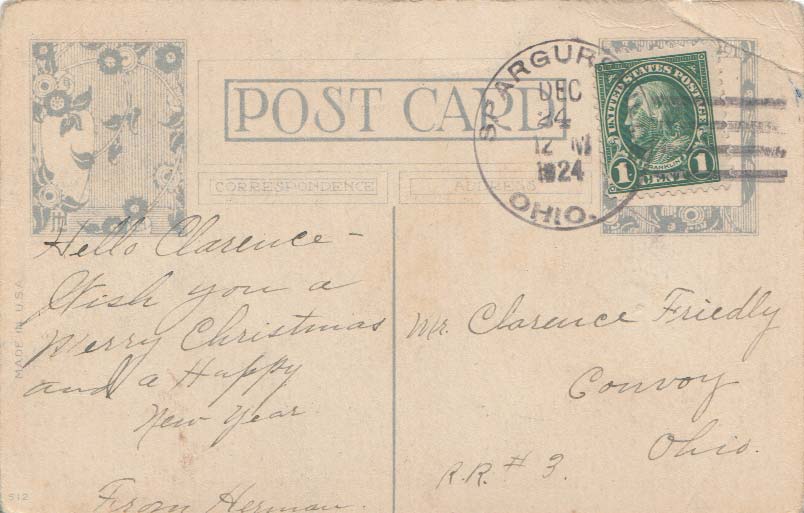 POST CARD
CORRESPONDENCE
ADDRESS
DEC
24
12 M
1924
OHIO.
UNITED STATES POSTAGE
FRANKLIN
1 CENT 1
Hello Clarence –
Wish you a
Merry Christmas
and a Happy
New Year
From Herman.
Mr. Clarence Friedly
Convoy
Ohio.
R.R. # 3.
MADE IN U.S.A.
512